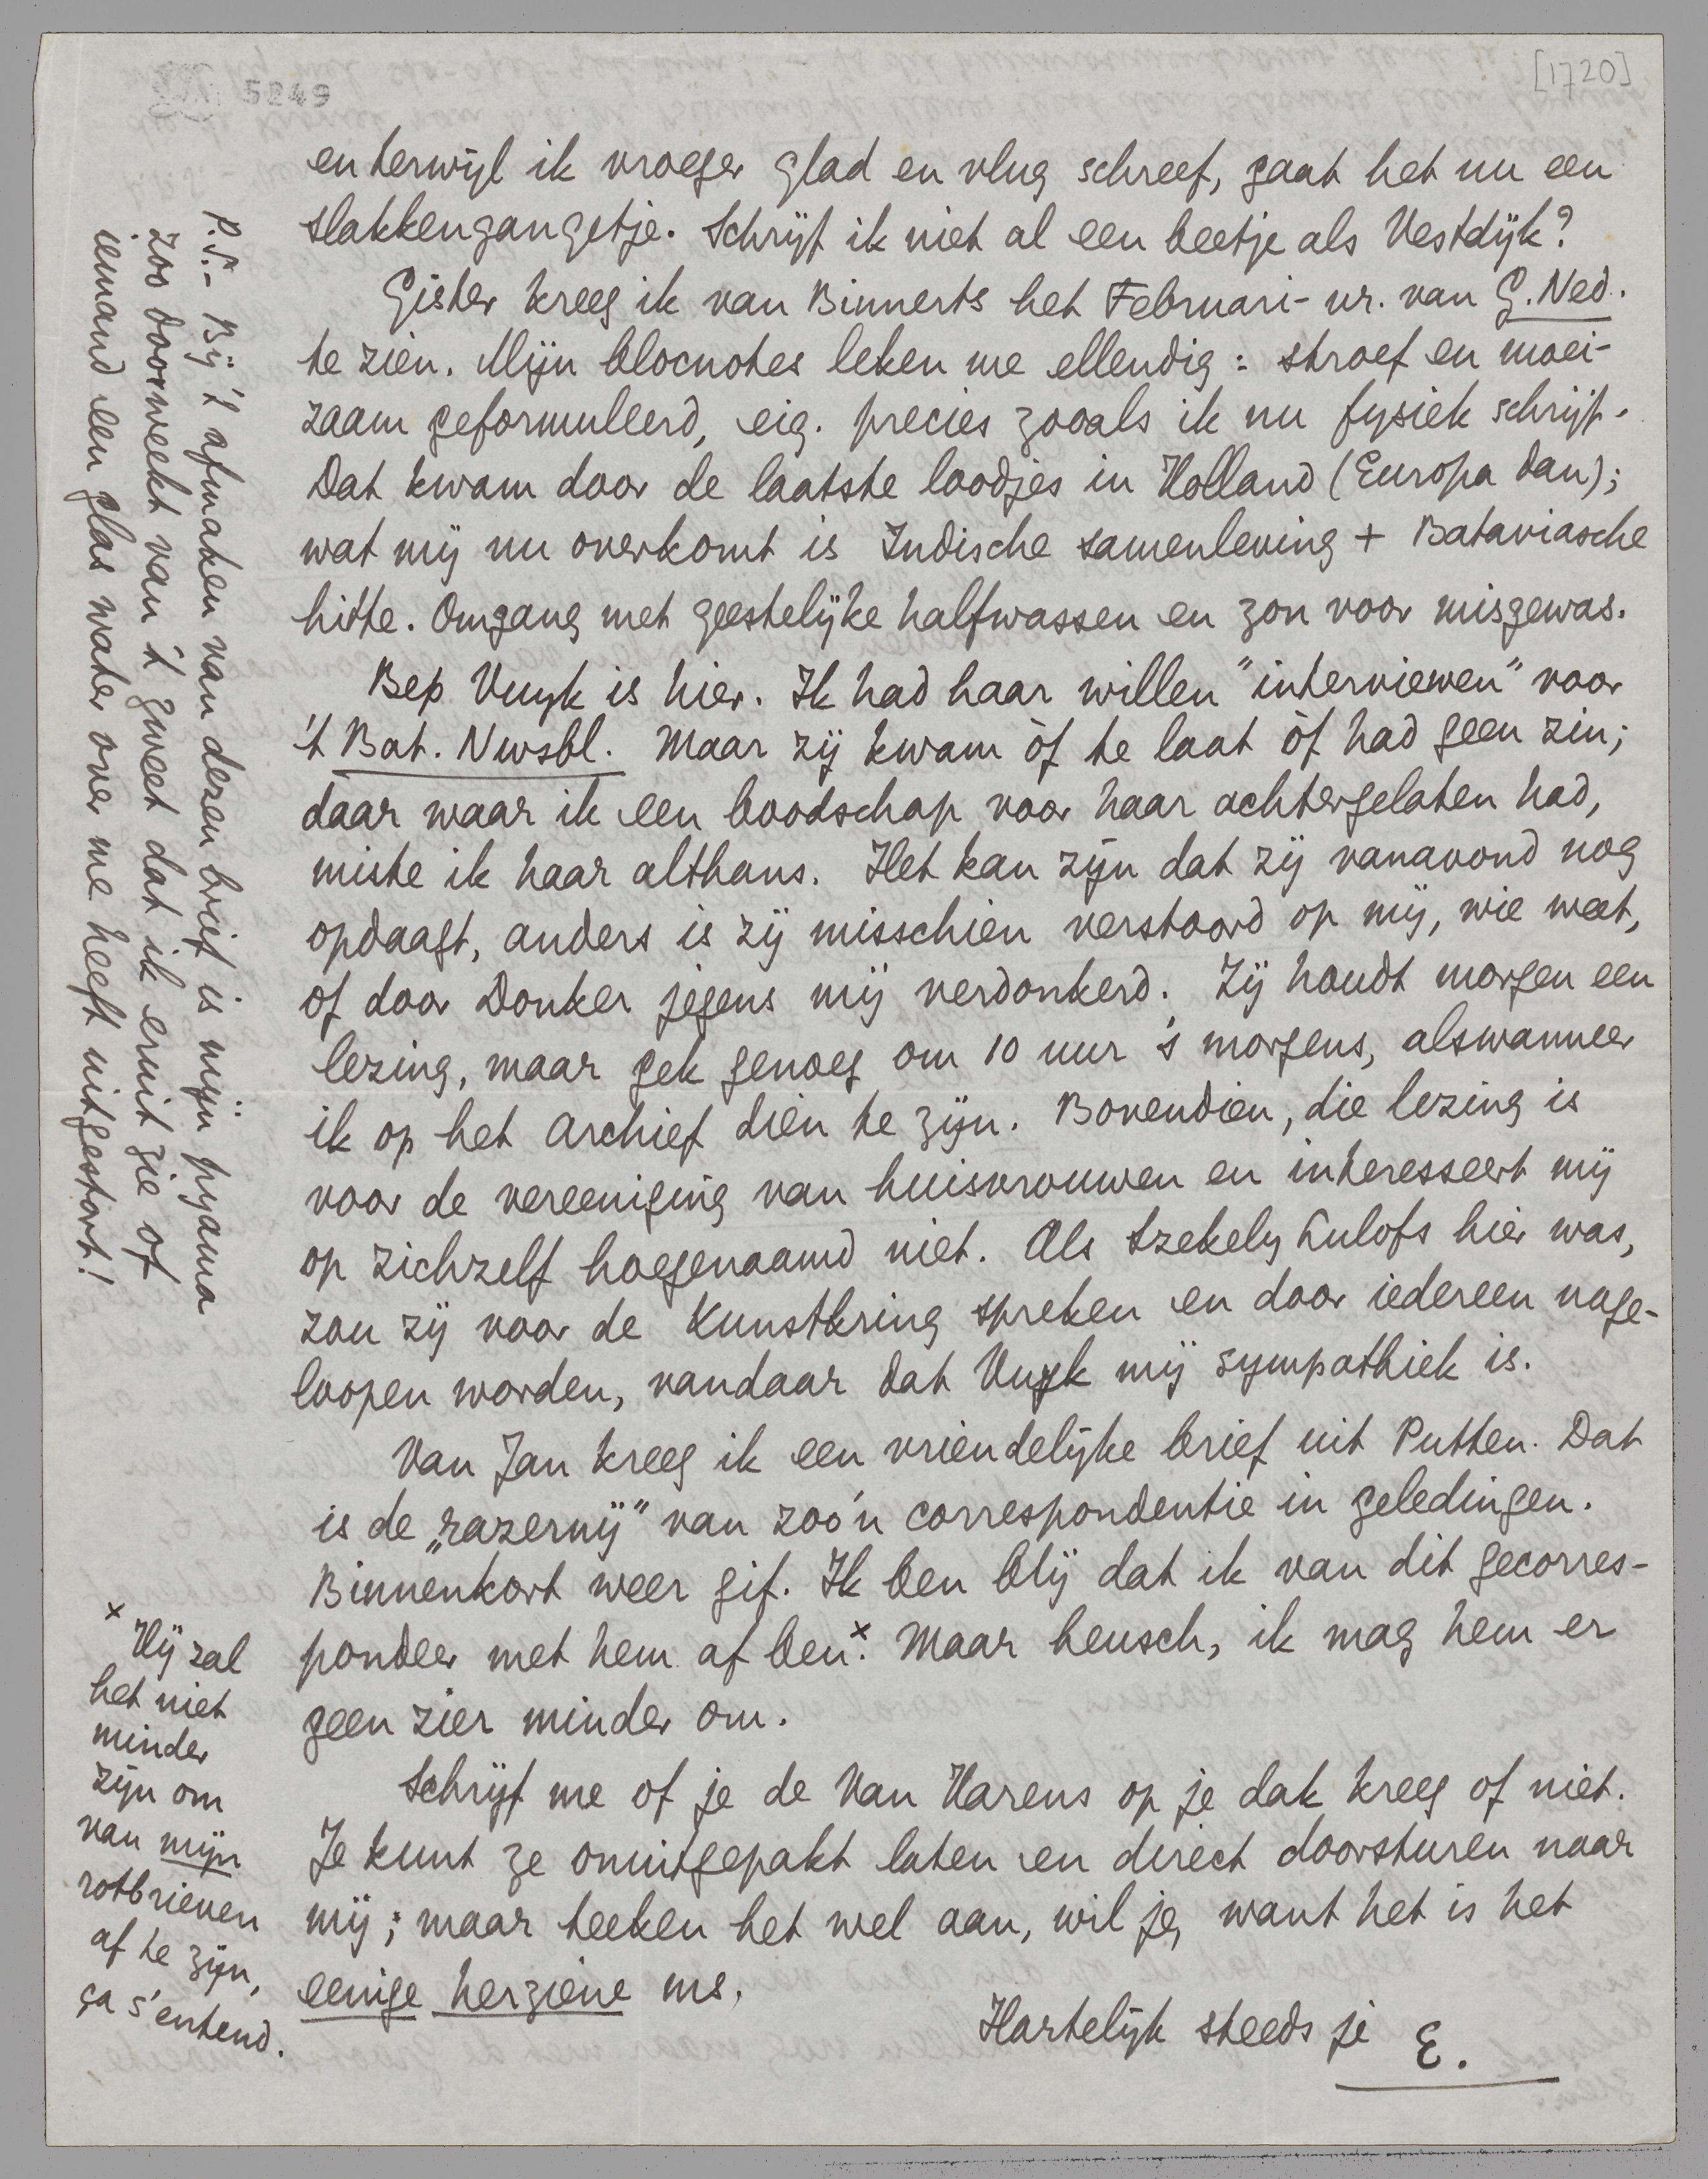 5249
[1720]
en terwijl ik vroeger glad en vlug schreef, gaat het nu een
slakkengangetje. Schrijf ik niet al een beetje als Vestdijk?
Gister kreeg ik van Binnerts het Februari-nr. van G. Ned.
te zien. Mijn blocnotes leken me ellendig: stroef en moei-
zaam geformuleerd, eig. precies zooals ik nu fysiek schrijf.
Dat kwam door de laatste loodjes in Holland (Europa dan);
wat mij nu overkomt is Indische samenleving + Bataviasche
hitte. Omgang met geestelijke halfwassen en zon voor misgewas.
Bep Vuyk is hier. Ik had haar willen "interviewen" voor
't Bat. Nwsbl. Maar zij kwam òf te laat òf had geen zin;
daar waar ik een boodschap voor haar achtergelaten had,
miste ik haar althans. Het kan zijn dat zij vanavond nog
opdaagt, anders is zij misschien verstoord op mij, wie weet,
of door Donker jegens mij verdonkerd. Zij houdt morgen een
lezing, maar gek genoeg om 10 uur 's morgens, alswanneer
ik op het Archief dien te zijn. Bovendien, die lezing is
voor de vereeniging van huisvrouwen en interesseert mij
op zichzelf hoegenaamd niet. Als Szekely Lulofs hier was,
zou zij voor de Kunstkring spreken en door iedereen nage-
loopen worden, vandaar dat Vuyk mij sympathiek is.
Van Jan kreeg ik een vriendelijke brief uit Putten. Dat
is de „razernij" van zoo'n correspondentie in geledingen.
Binnenkort weer gif. Ik ben blij dat ik van dit gecorres-
pondeer met hem af ben.x Maar heusch, ik mag hem er
geen zier minder om.
Schrijf me of je de Van Harens op je dak kreeg of niet.
Je kunt ze onuitgepakt laten en direct doorsturen naar
mij; maar teeken het wel aan, wil je, want het is het
eenige herziene ms.
Hartelijk steeds je E.
x Hij zal
het niet
minder
zijn om
van mijn
rotbrieven
af te zijn,
ça s'entend.
P.S.- Bij 't afmaken van dezen brief is mijn pyjama
zoo doorweekt van 't zweet dat ik eruit zie of
iemand een glas water over me heeft uitgestort!